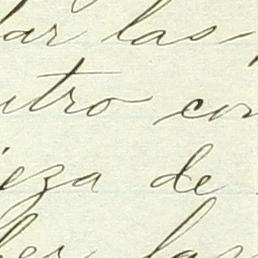 ar las
utro con
ieza de
ber las